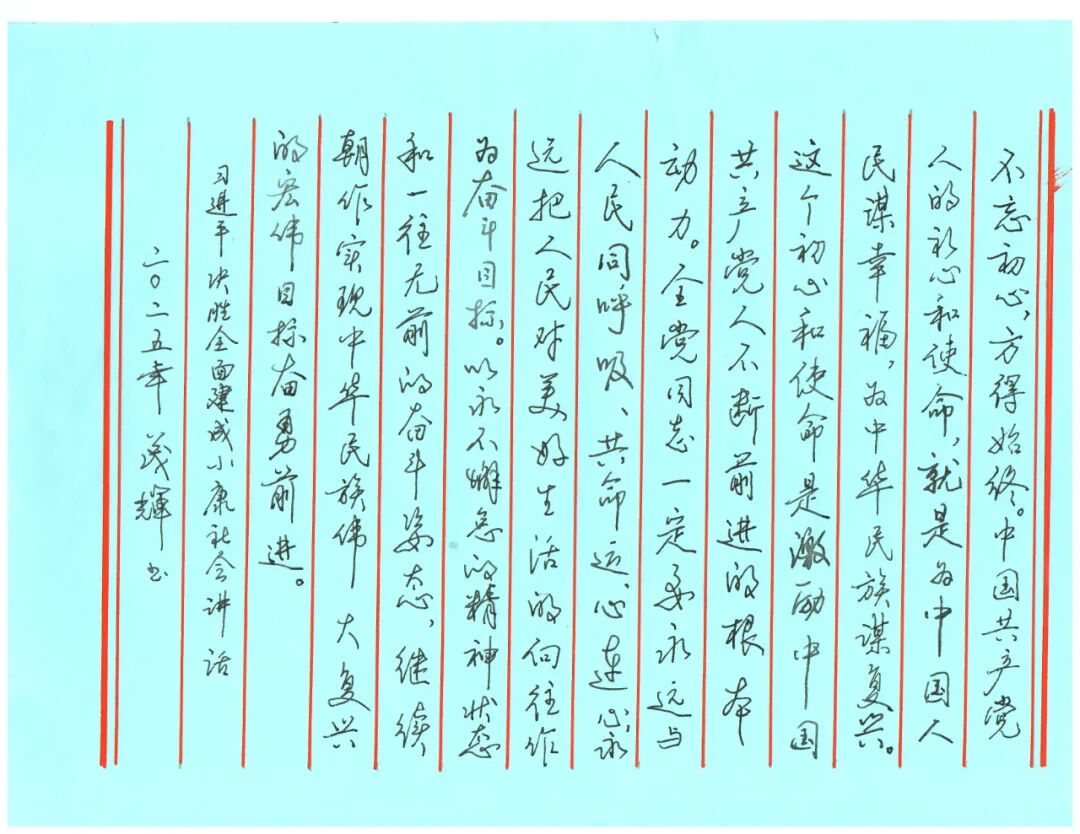 不忘初心，方得始终。中国共产党
人的初心和使命，就是为中国人
民谋幸福，为中华民族谋复兴。
这个初心和使命是激励中国
共产党人不断前进的根本
动力。全党同志一定要永远与
人民同呼吸、共命运、心连心，永
远把人民对美好生活的向往作
为奋斗目标。以永不懈怠的精神状态
和一往无前的奋斗姿态，继续
朝作实现中华民族伟大复兴
的宏伟目标奋勇前进。
习进平决胜全面建成小康社会讲话
二〇二五年 茂辉书